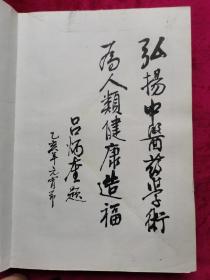 弘揚中醫药學術
為人類健康造福
吕炳奎题
乙亥年元宵节